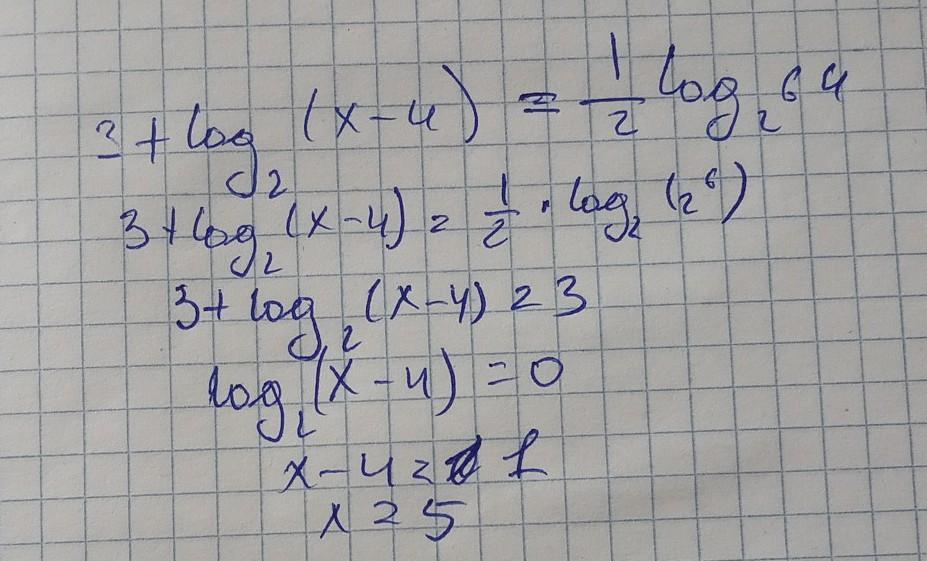 3 + log₂ (x - 4) = 1/2 log₂ 64
3 + log₂ (x - 4) = 1/2 · log₂ (2⁶)
3 + log₂ (x - 4) = 3
log₂ (x - 4) = 0
x - 4 = 1
x = 5